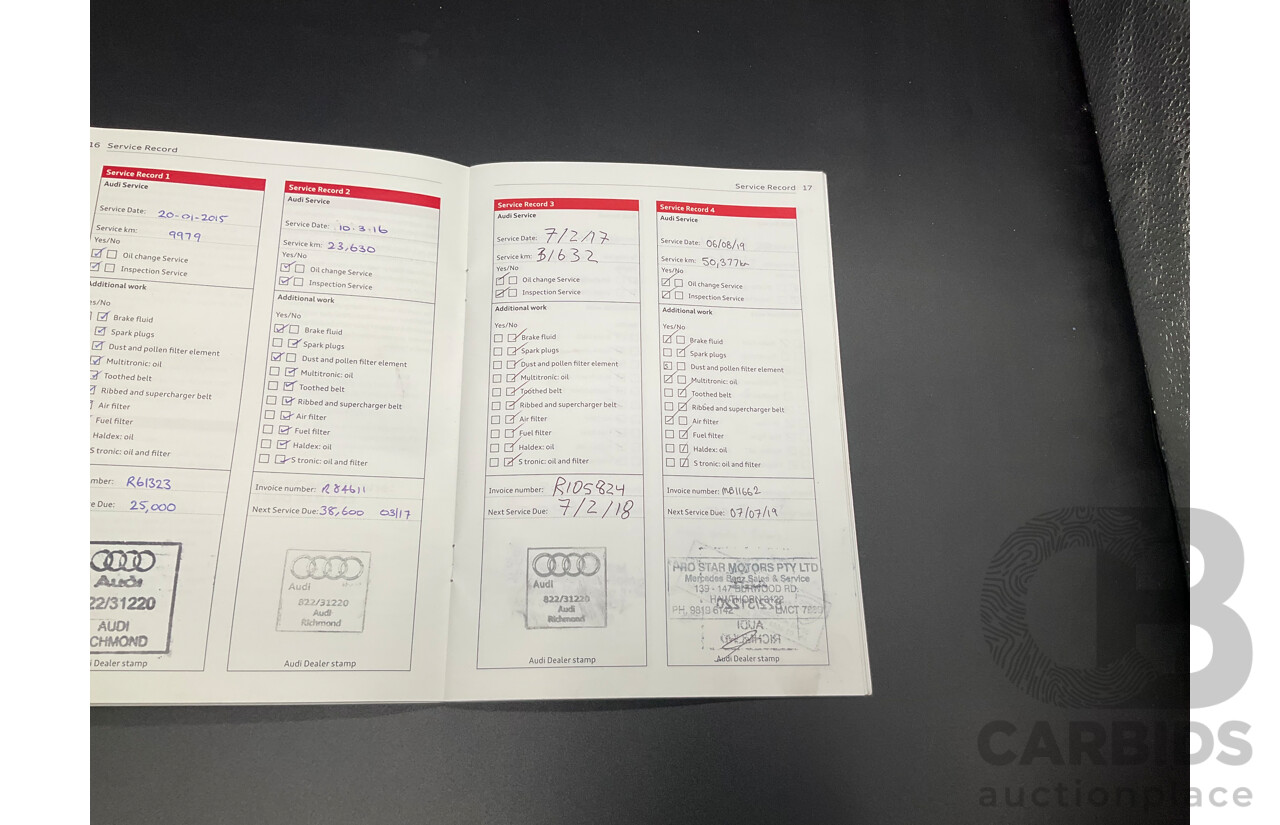 16 Service Record
Service Record 1
Audi Service
Service Date: 20-01-2015
Service km: 9979
Yes/No
Oil change Service
Inspection Service
Additional work
Yes/No
Brake fluid
Spark plugs
Dust and pollen filter element
Multitronic: oil
Toothed belt
Ribbed and supercharger belt
Air filter
Fuel filter
Haldex: oil
S tronic: oil and filter
mber: R61323
e Due: 25,000
Audi
22/31220
AUDI
CHMOND
i Dealer stamp
Service Record 2
Audi Service
Service Date: 10.3.16
Service km: 23,630
Yes/No
Oil change Service
Inspection Service
Additional work
Yes/No
Brake fluid
Spark plugs
Dust and pollen filter element
Multitronic: oil
Toothed belt
Ribbed and supercharger belt
Air filter
Fuel filter
Haldex: oil
S tronic: oil and filter
Invoice number: R 84611
Next Service Due: 38,600 03/17
Audi
822/31220
Audi
Richmond
Audi Dealer stamp
Service Record 17
Service Record 3
Audi Service
Service Date: 7/2/17
Service km: 31632
Yes/No
Oil change Service
Inspection Service
Additional work
Yes/No
Brake fluid
Spark plugs
Dust and pollen filter element
Multitronic: oil
Toothed belt
Ribbed and supercharger belt
Air filter
Fuel filter
Haldex: oil
S tronic: oil and filter
Invoice number: R105824
Next Service Due: 7/2/18
Audi
822/31220
Audi
Richmond
Audi Dealer stamp
Service Record 4
Audi Service
Service Date: 06/08/19
Service km: 50,377km
Yes/No
Oil change Service
Inspection Service
Additional work
Yes/No
Brake fluid
Spark plugs
Dust and pollen filter element
Multitronic: oil
Toothed belt
Ribbed and supercharger belt
Air filter
Fuel filter
Haldex: oil
S tronic: oil and filter
Invoice number: MB11662
Next Service Due: 07/07/19
PRO STAR MOTORS PTY LTD
Mercedes Benz Sales & Service
139 - 147 BURWOOD RD.
HAWTHORN 3122
PH. 9819 6142
AUDI
RICHMOND
Audi Dealer stamp
CARBIDS
auctionplace